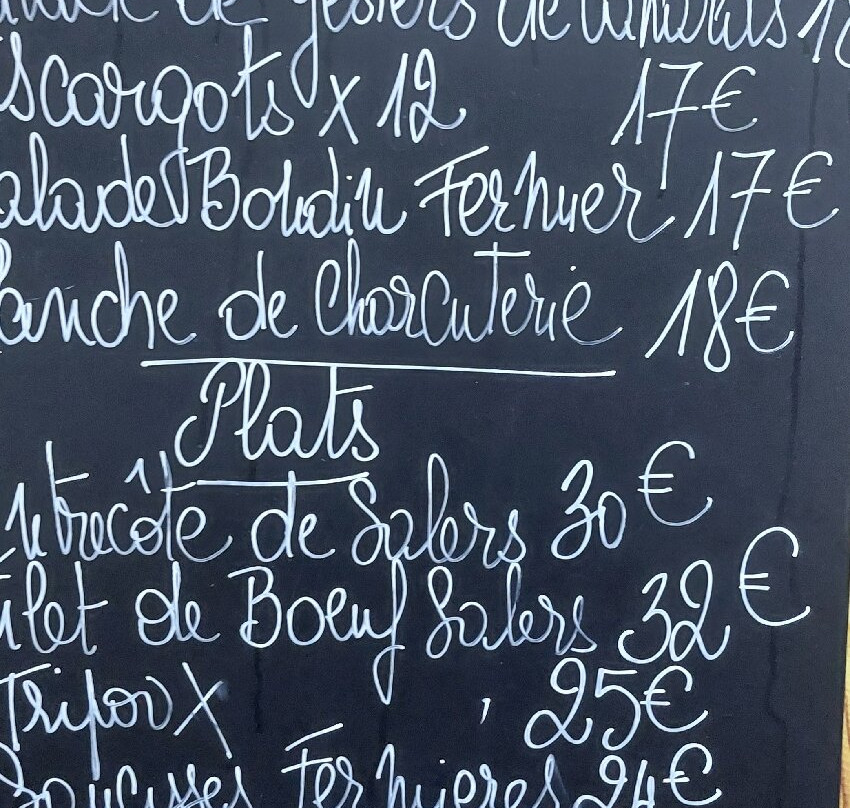 de gésiers de canards
scargots x 12 17€
alades Boudin Fermier 17€
lanche de Charcuterie 18€
Plats
ntrecôte de Salers 30€
ilet de Boeuf Salers 32€
Tripoux 25€
Saucisses Fermieres 24€